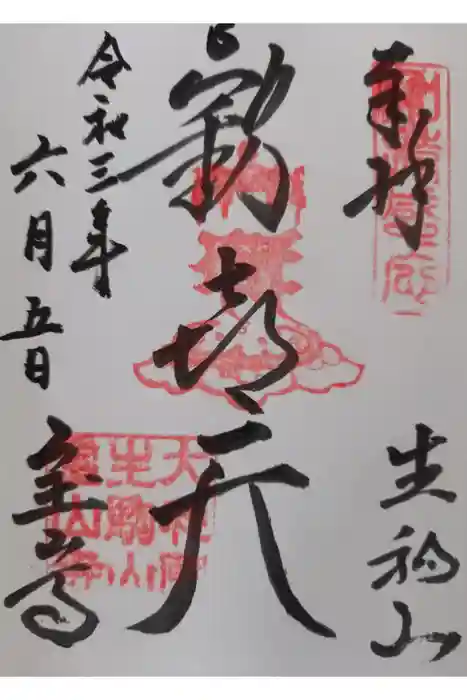 奉拝
生駒山
歓喜天
令和三年
六月五日
宝山寺
大和國
生駒山
寶山寺